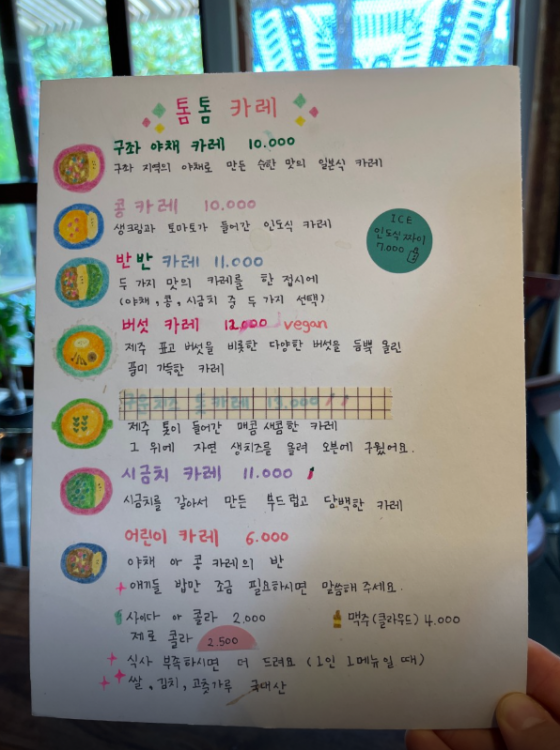 톰톰 카레
구좌 야채 카레 10.000
구좌 지역의 야채로 만든 순한 맛의 일본식 카레
콩 카레 10.000
생크림과 토마토가 들어간 인도식 카레
ICE
인도식 짜이
7.000
반반 카레 11.000
두 가지 맛의 카레를 한 접시에
(야채, 콩, 시금치 중 두 가지 선택)
버섯 카레 12,000 vegan
제주 표고 버섯을 비롯한 다양한 버섯을 듬뿍 올린
풍미 가득한 카레
카레
제주 톳이 들어간 매콤 새콤한 카레
그 위에 자연 생치즈를 올려 오븐에 구웠어요.
시금치 카레 11.000
시금치를 갈아서 만든 부드럽고 담백한 카레
어린이 카레 6.000
야채 or 콩 카레의 반
애기들 밥만 조금 필요하시면 말씀해 주세요.
사이다 or 콜라 2.000
맥주(클라우드) 4.000
제로 콜라 2.500
식사 부족하시면 더 드려요 (1인 1메뉴일 때)
쌀, 김치, 고춧가루 국내산